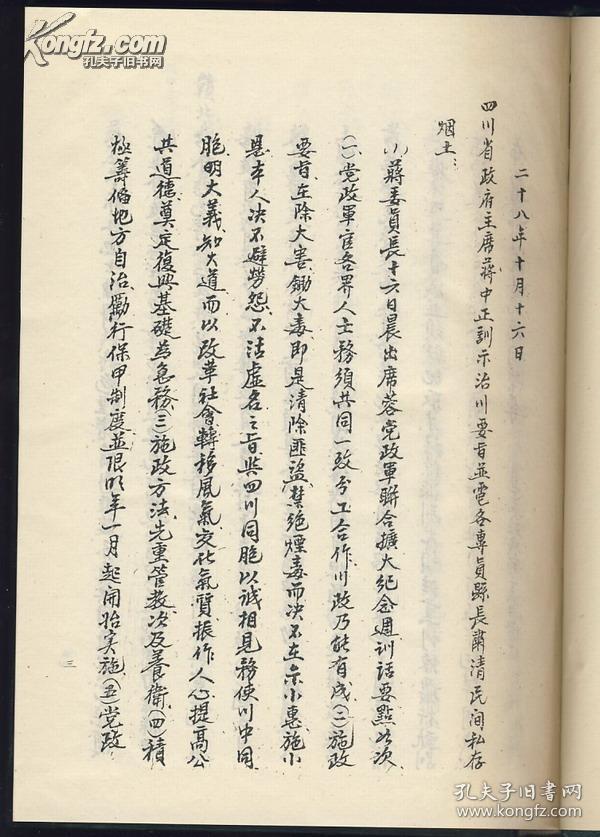 Kongfz.com
孔夫子旧书网
二十八年十月十六日
四川省政府主席蔣中正訓示治川要旨並電各專員縣長肅清民间私存
烟土：
(1)蔣委員長十六日晨出席蓉党政軍聯合擴大纪念週訓话要點如次
(一)党政軍官各界人士務須共同一致分工合作川政乃能有成(二)施政
要旨在除大害鋤大毒即是清除匪盜禁绝煙毒而决不在示小惠施小
是本人决不避勞怨不沽虚名之旨與四川同胞以诚相見務使川中同
胞明大義知大道而以改革社會轉移風氣变化氣質振作人心提高公
共道德奠定復興基礎為急務(三)施政方法先重管教次及養衛(四)積
極籌備地方自治勵行保甲制度並限明年一月起開始实施(五)党政
三
孔夫子旧书网
www.kongfz.com